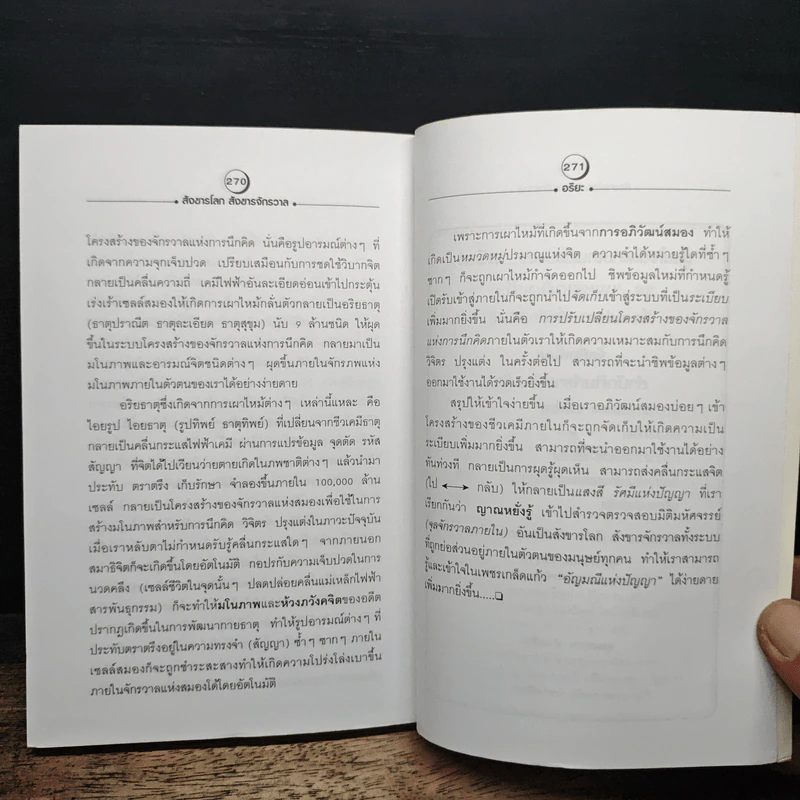 270
สังขารโลก สังขารจักรวาล
โครงสร้างของจักรวาลแห่งการนึกคิด นั่นคือรูปอารมณ์ต่างๆ ที่
เกิดจากความจุกเจ็บปวด เปรียบเสมือนกับการชดใช้วิบากจิต
กลายเป็นคลื่นความถี่ เคมีไฟฟ้าอันละเอียดอ่อนเข้าไปกระตุ้น
เร่งเร้าเซลล์สมองให้เกิดการเผาไหม้กลั่นตัวกลายเป็นอริยธาตุ
(ธาตุปราณีต ธาตุละเอียด ธาตุสุขุม) นับ 9 ล้านชนิด ให้ผุด
ขึ้นในระบบโครงสร้างของจักรวาลแห่งการนึกคิด กลายมาเป็น
มโนภาพและอารมณ์จิตชนิดต่างๆ ผุดขึ้นภายในจักรภพแห่ง
มโนภาพภายในตัวตนของเราได้อย่างง่ายดาย
อริยธาตุซึ่งเกิดจากการเผาไหม้ต่างๆ เหล่านี้แหละ คือ
ไอยรูป ไอยธาตุ (รูปทิพย์ ธาตุทิพย์) ที่เปลี่ยนจากชีวเคมีธาตุ
กลายเป็นคลื่นกระแสไฟฟ้าเคมี ผ่านการแปรข้อมูล จุดตัด รหัส
สัญญา ที่จิตได้ไปเวียนว่ายตายเกิดในภพชาติต่างๆ แล้วนำมา
ประทับ ตราตรึง เก็บรักษา จำลองขึ้นภายใน 100,000 ล้าน
เซลล์ กลายเป็นโครงสร้างของจักรวาลแห่งสมองเพื่อใช้ในการ
สร้างมโนภาพสำหรับการนึกคิด วิจิตร ปรุงแต่งในภาวะปัจจุบัน
เมื่อเราหลับตาไม่กำหนดรับรู้คลื่นกระแสใดๆ จากภายนอก
สมาธิจิตก็จะเกิดขึ้นโดยอัตโนมัติ กอปรกับความเจ็บปวดในการ
นวดคลึง (เซลล์ชีวิตในจุดนั้นๆ ปลดปล่อยคลื่นแม่เหล็กไฟฟ้า
สารพันธุกรรม) ก็จะทำให้มโนภาพและห้วงภวังคจิตของอดีต
ปรากฏเกิดขึ้นในการพัฒนากายธาตุ ทำให้รูปอารมณ์ต่างๆ ที่
ประทับตราตรึงอยู่ในความทรงจำ (สัญญา) ซ้ำๆ ซากๆ ภายใน
เซลล์สมองก็จะถูกชำระสะสางทำให้เกิดความโปร่งโล่งเบาขึ้น
ภายในจักรวาลแห่งสมองได้โดยอัตโนมัติ
271
อริยะ
เพราะการเผาไหม้ที่เกิดขึ้นจากการอภิวัฒน์สมอง ทำให้
เกิดเป็นหมวดหมู่ปรมาณูแห่งจิต ความจำได้หมายรู้ใดที่ซ้ำๆ
ซากๆ ก็จะถูกเผาไหม้กำจัดออกไป ชิพข้อมูลใหม่ที่กำหนดรู้
เปิดรับเข้าสู่ภายในก็จะถูกนำไปจัดเก็บเข้าสู่ระบบที่เป็นระเบียบ
เพิ่มมากยิ่งขึ้น นั่นคือ การปรับเปลี่ยนโครงสร้างของจักรวาล
แห่งการนึกคิดภายในตัวเราให้เกิดความเหมาะสมกับการนึกคิด
วิจิตร ปรุงแต่ง ในครั้งต่อไป สามารถที่จะนำชิพข้อมูลต่างๆ
ออกมาใช้งานได้รวดเร็วยิ่งขึ้น
สรุปให้เข้าใจง่ายขึ้น เมื่อเราอภิวัฒน์สมองบ่อยๆ เข้า
โครงสร้างของชีวเคมีภายในก็จะถูกจัดเก็บให้เกิดความเป็น
ระเบียบเพิ่มมากยิ่งขึ้น สามารถที่จะนำออกมาใช้งานได้อย่าง
ทันท่วงที กลายเป็นการผุดรู้ผุดเห็น สามารถส่งคลื่นกระแสจิต
(ไป ⟷ กลับ) ให้กลายเป็นแสงสี รัศมีแห่งปัญญา ที่เรา
เรียกกันว่า ญาณหยั่งรู้ เข้าไปสำรวจตรวจสอบมิติมหัศจรรย์
(จุลจักรวาลภายใน) อันเป็นสังขารโลก สังขารจักรวาลทั้งระบบ
ที่ถูกย่อส่วนอยู่ภายในตัวตนของมนุษย์ทุกคน ทำให้เราสามารถ
รู้และเข้าใจในเพชรเกล็ดแก้ว "อัญมณีแห่งปัญญา" ได้ง่ายดาย
เพิ่มมากยิ่งขึ้น.....❏